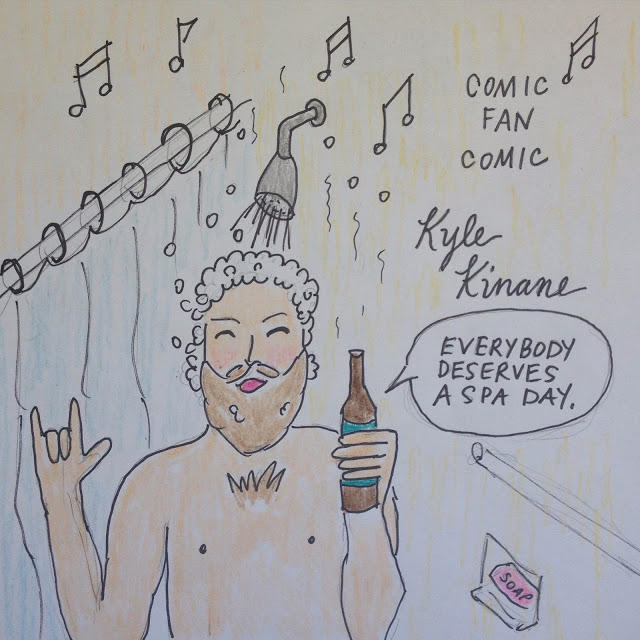 COMIC
FAN
COMIC
Kyle
Kinane
EVERYBODY
DESERVES
A SPA DAY.
SOAP